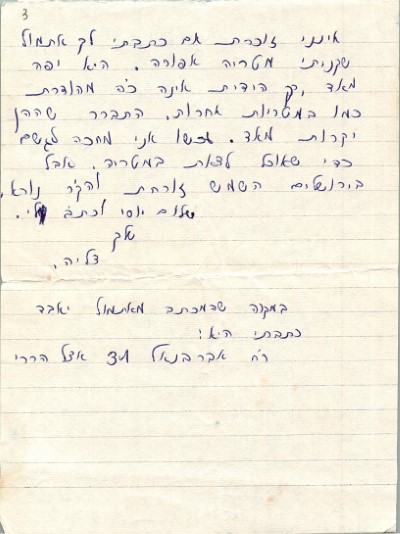 3
אינני זוכרת אם כתבתי לך אתמול
שקניתי מטריה אפורה. היא יפה
מאד, רק הידית אינה כ"כ מהודרת
כמו במטריות אחרות. התברר שהן
יקרות מאד. עכשו אני מחכה לגשם
כדי שאוכל לצאת במטריה. אבל
בירושלים השמש זורחת והקר נורא.
שלום יוסי וכתב לי.
שלך
דליה.
במקרה שהמכתב מאתמול יאבד
כתבתי היא:
רח' אברבנאל אצל הררי